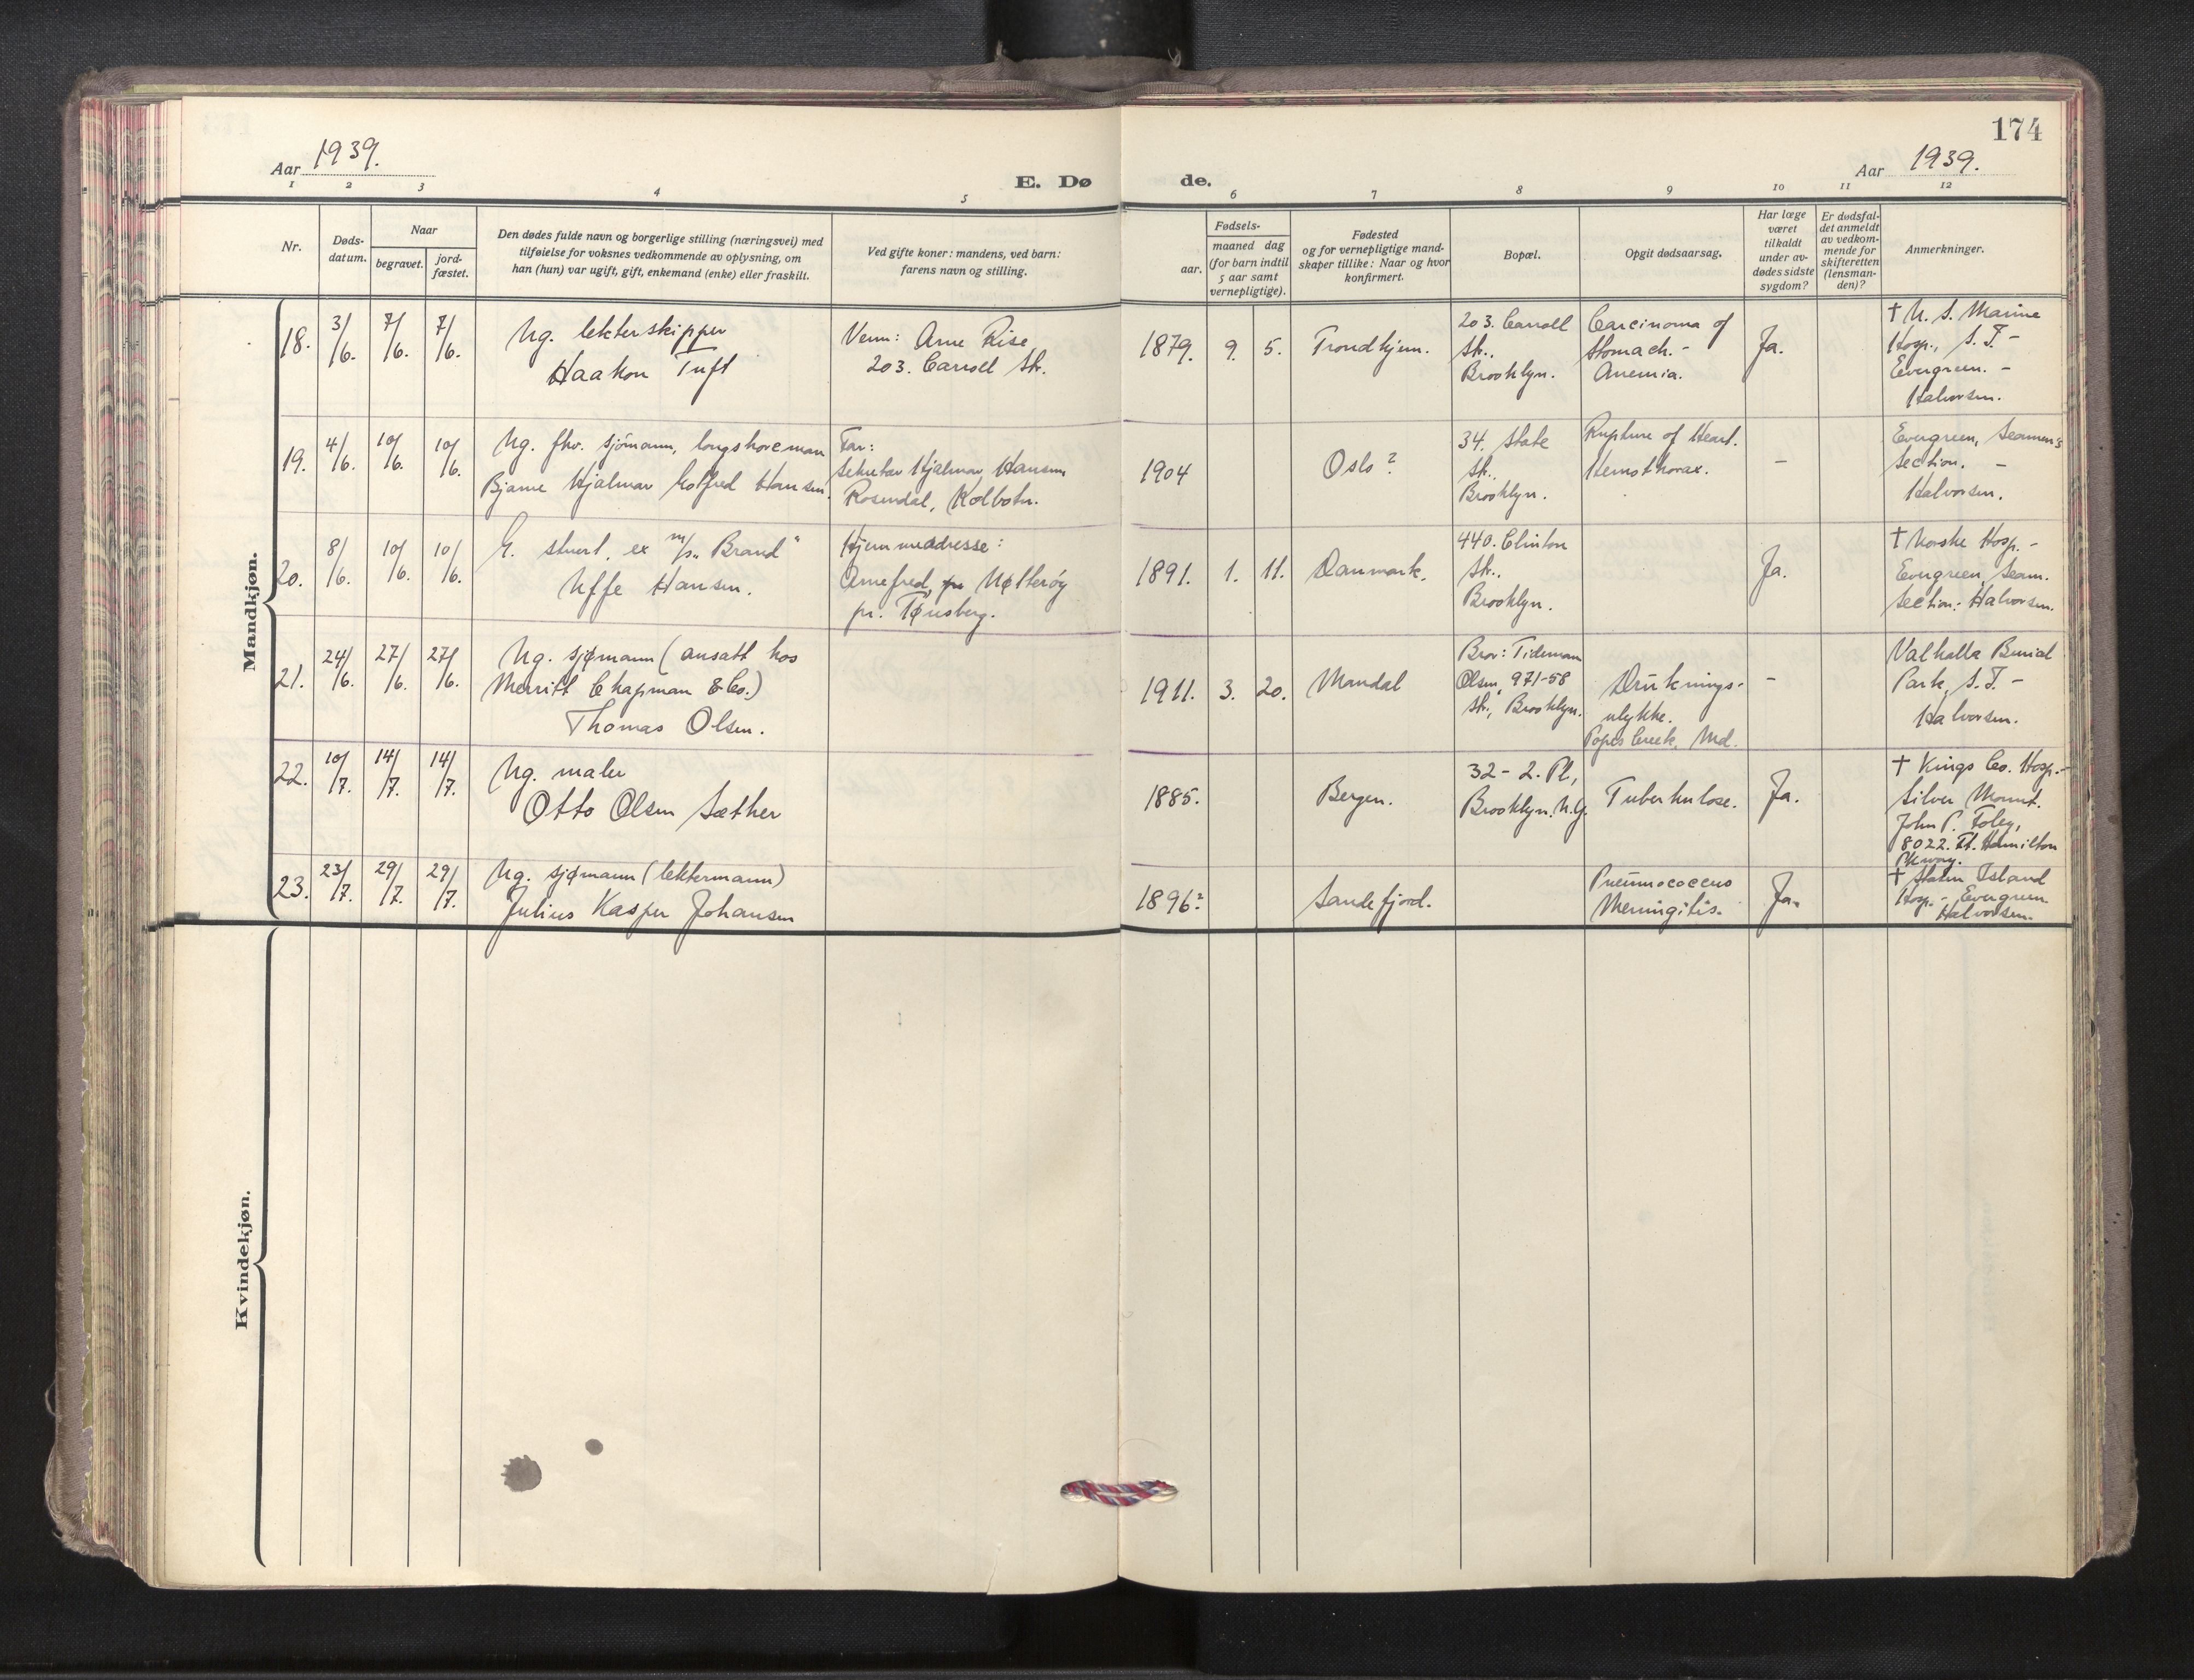 174
Aar 1939.
E. Døde.
Aar 1939.
1 2 3 4 5 6 7 8 9 10 11 12
Nr.
Døds-
datum.
Naar
begravet.
jord-
fæstet.
Den dødes fulde navn og borgerlige stilling (næringsvei) med
tilføielse for voksnes vedkommende av oplysning, om
han (hun) var ugift, gift, enkemand (enke) eller fraskilt.
Ved gifte koner: mandens, ved barn:
farens navn og stilling.
Fødsels-
aar.
maaned dag
(for barn indtil
5 aar samt
vernepligtige).
Fødested
og for vernepligtige mand-
skaper tillike: Naar og hvor
konfirmert.
Bopæl.
Opgit dødsaarsag.
Har læge
været
tilkaldt
under av-
dødes sidste
sygdom?
Er dødsfal-
det anmeldt
av vedkom-
mende for
skifteretten
(lensman-
den)?
Anmerkninger.
Mandkjøn.
18. 3/6. 7/6. 7/6.
Ug. lekterskipper
Haakon Tuft
Venn: Arne Rise
203. Carroll Str.
1879. 9. 5.
Trondhjem.
203. Carroll
Str.,
Brooklyn.
Carcinoma of
Stomach. -
Anemia.
Ja.
† U. S. Marine
Hosp., S. I. -
Evergreen. -
Halvorsen.
19. 4/6. 10/6. 10/6.
Ug. fhv. sjømann, longshoreman
Bjarne Hjalmar Gotfred Hansen.
Far:
Sekretær Hjalmar Hansen
Rosendal, Kolbotn.
1904
Oslo?
34. State
Str.,
Brooklyn.
Rupture of Heart.
Hemothorax.
-
Evergreen, Seamen's
Section. -
Halvorsen.
20. 8/6. 10/6. 10/6.
G. stuert, ex m/s "Brand"
Uffe Hansen.
Hjemmeadresse:
Arnefred, pr Nøtterøy
pr. Tønsberg.
1891. 1. 11.
Danmark.
440. Clinton
Str.,
Brooklyn.
Ja.
† Norske Hosp. -
Evergreen, Seam.
Section: Halvorsen.
21. 24/6. 27/6. 27/6.
Ug. sjømann (ansatt hos
Merritt Chapman & Co.)
Thomas Olsen.
1911. 3. 20.
Mandal
Bror: Tideman
Olsen, 971-58
Str., Brooklyn.
Druknings-
ulykke.
Popes Creek, Md.
-
Valhalla Burial
Park, S. I. -
Halvorsen.
22. 10/7. 14/7. 14/7.
Ug. maler
Otto Olsen Sæther
1885.
Bergen.
32 - 2. Pl,
Brooklyn. N.Y.
Tuberkulose.
Ja.
† Kings Co. Hosp. -
Silver Mount.
John P. Foley,
8022. Ft. Hamilton
Pkway.
23. 23/7. 29/7. 29/7.
Ug. sjømann (lektermann)
Julius Kasper Johansen
1896?
Sandefjord.
Pneumococcus
Meningitis.
Ja.
† Staten Island
Hosp. - Evergreen
Halvorsen.
Kvindekjøn.